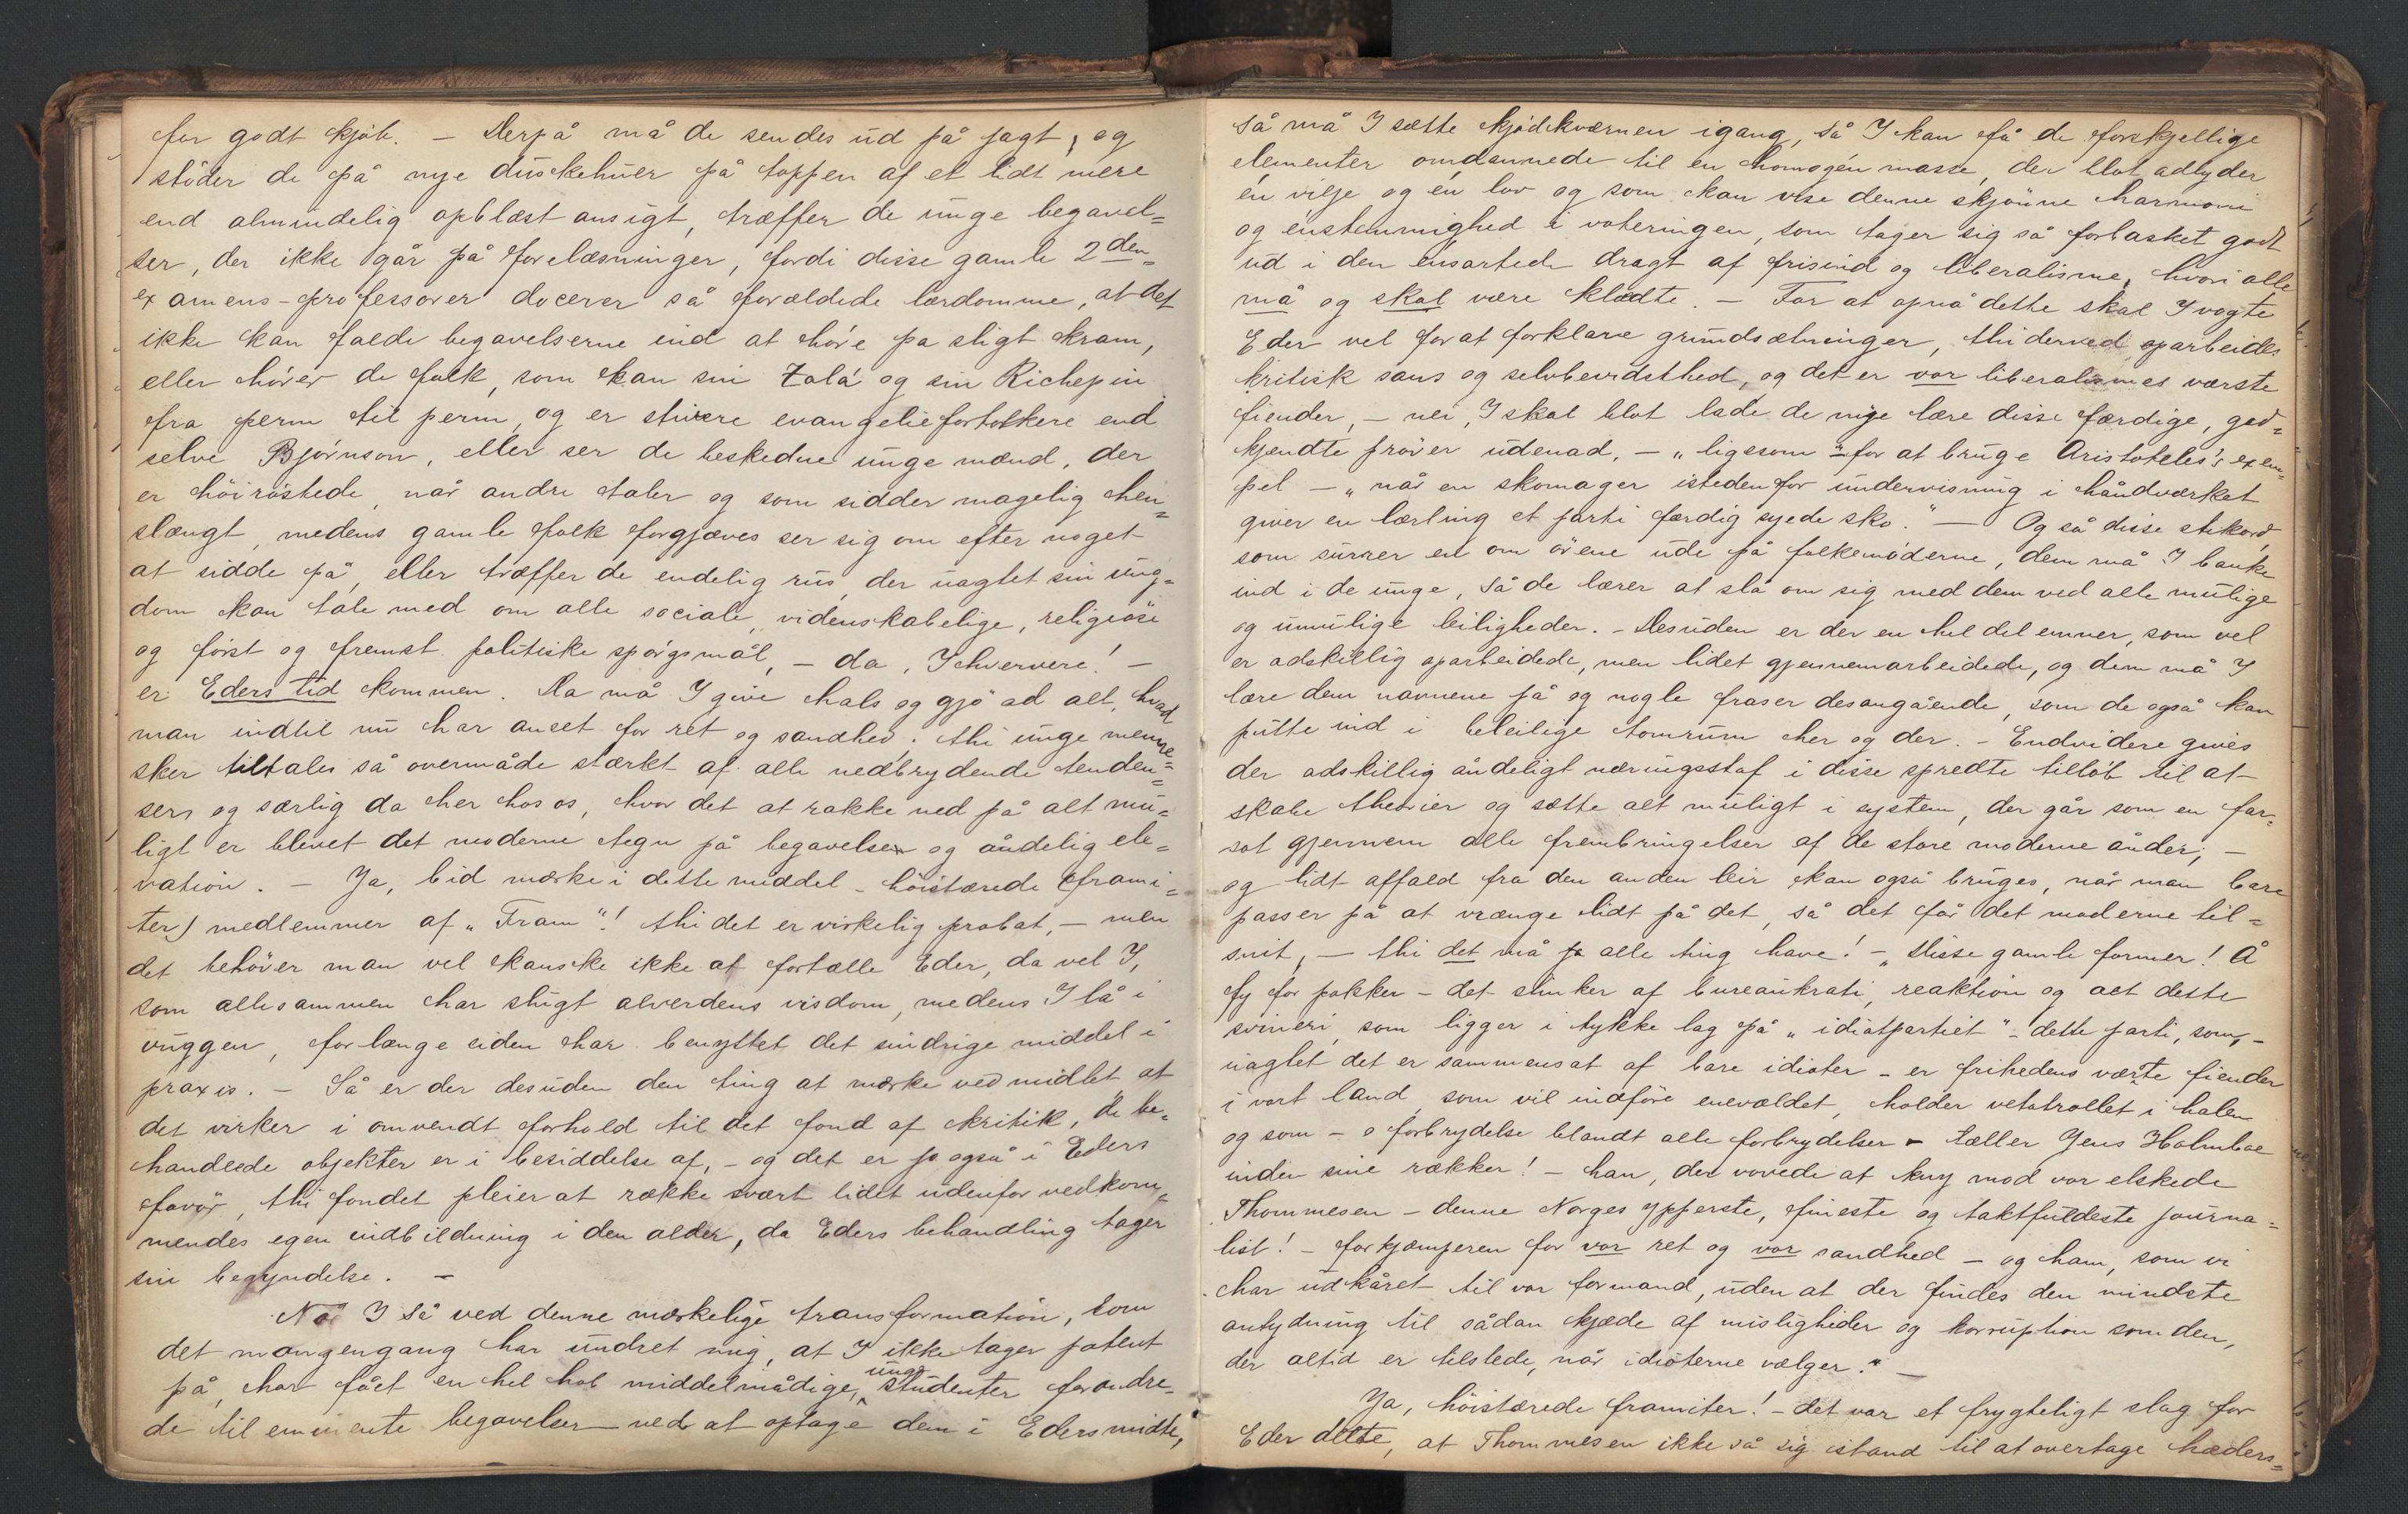 for godt kjøb. – Derpå må de sendes ud på jagt, og
støder de på nye duskehuer på toppen af et lidt mere
end almindelig opblæst ansigt, træffer de unge begavel=
ser, der ikke går på forelæsninger, fordi disse gamle 2den=
examens-professorer docerer så forældede lærdomme, at det
ikke kan falde begavelserne ind at høre på sligt skram,
eller hører de folk, som kan sin Zola og sin Richepin
fra perm til perm, og er stivere evangeliefortolkere end
selve Bjørnson, eller ser de beskedne unge mænd, der
er høirøstede, når andre taler og som sidder magelig hen=
slængt, medens gamle folk forgjæves ser sig om efter noget
at sidde på, eller træffer de endelig rus, der uagtet sin ung=
dom kan tale med om alle sociale, videnskabelige, religiøse
og først og fremst politiske spørgsmål, – da, I hververe! –
er Eders tid kommen. Da må I give hals og gjø ad alt, hvad
man indtil nu har anset for ret og sandhed; thi unge menne=
sker tiltales så overmåde stærkt af alle nedbrydende tenden=
sers og særlig da her hos os, hvor det at rakke ned på alt mu=
ligt er blevet det moderne tegn på begavelsen og åndelig ele=
vation. – Ja, bid mærke i dette middel – høistærede (frami=
ter) medlemmer af „Fram"! thi det er virkelig probat, – men
det behøver man vel kanske ikke at fortælle Eder, da vel I,
som allesammen har slugt alverdens visdom, medens I lå i
vuggen, for længe siden har benyttet det sindrige middel i
praxis. – Så er der desuden den ting at mærke ved midlet, at
det virker i omvendt forhold til det fond af kritik, de be=
handlede objekter er i besiddelse af, – og det er jo også i Eders
favør, thi fondet pleier at række svært lidet udenfor vedkom=
mendes egen indbildning i den alder, da Eders behandling tager
sin begyndelse. –
Når I så ved denne mærkelige transformation, som
det mangengang har undret mig, at I ikke tager patent
på, har fået en hel hob middelmådige, unge studenter forandre=
de til eminente begavelser ved at optage dem i Eders midte,
så må I sætte kjødkværnen igang, så I kan få de forskjellige
elementer omdannede til en homogén masse, der blot adlyder
én vilje og én lov og som kan vise denne skjønne harmoni
og enstemmighed i voteringen, som tager sig så forbasket godt
ud i den ensartede dragt af frisind og liberalisme, hvori alle
må og skal være klædte. – For at opnå dette skal I vogte
Eder vel for at forklare grundsætninger, thi derved oparbeides
kritisk sans og selvbevidsthed, og det er vor liberalismes værste
fiender, – nei, I skal blot lade de nye lære disse færdige, god=
kjendte prøver udenad, – „ligesom" – for at bruge Aristoteles's exem=
pel – „når en skomager istedenfor undervisning i håndværket
giver en lærling et parti færdig syede sko." – Og så disse stikord,
som surrer en om ørene ude på folkemøderne, dem må I banke
ind i de unge, så de lærer at slå om sig med dem ved alle mulige
og umulige leiligheder. – Desuden er der en hel del emner, som vel
er adskillig oparbeidede, men lidet gjennemarbeidede, og dem må I
lære dem navnene på og nogle fraser desangående, som de også kan
putte ind i beleilige tomrum her og der. – Endvidere gives
der adskillig åndeligt næringsstof i disse spredte tilløb til at
skabe theorier og sætte alt muligt i system, der går som en far=
sot gjennem alle frembringelser af de store moderne ånder; –
og lidt affald fra den anden leir kan også bruges, når man bare
passer på at vrænge lidt på det, så det får det moderne til=
snit, – thi det må jo alle ting have! – „Disse gamle former! Å
fy for pokker – det stinker af bureaukrati, reaktion og alt dette
svineri, som ligger i tykke lag på „idiotpartiet" – dette parti, som, –
uagtet det er sammensat af bare idioter – er frihedens værste fiender
i vort land, som vil indføre enevældet, holder vetotrollet i halen
og som – o forbrydelse blandt alle forbrydelser – tæller Jens Holmboe
inden sine rækker! – han, der vovede at kny mod vor elskede
Thommesen – denne Norges ypperste, fineste og taktfuldeste journa=
list! – forkjæmperen for vor ret og vor sandhed – og ham, som vi
har udkåret til vor formand, uden at der findes den mindste
antydning til sådan kjæde af misligheder og korruption som den,
der altid er tilstede, når idioterne vælger." –
Ja, høistærede framiter! – det var et frygteligt slag for
Eder dette, at Thommesen ikke så sig istand til at overtage hæders=